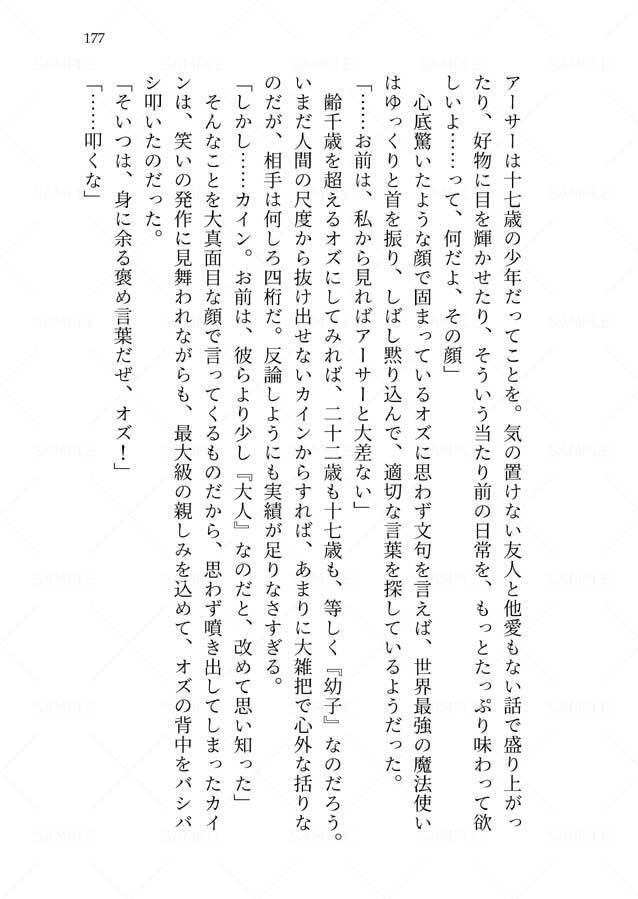 177
アーサーは十七歳の少年だってことを。気の置けない友人と他愛もない話で盛り上がっ
たり、好物に目を輝かせたり、そういう当たり前の日常を、もっとたっぷり味わって欲
しいよ……って、何だよ、その顔」
心底驚いたような顔で固まっているオズに思わず文句を言えば、世界最強の魔法使い
はゆっくりと首を振り、しばし黙り込んで、適切な言葉を探しているようだった。
「……お前は、私から見ればアーサーと大差ない」
齢千歳を超えるオズにしてみれば、二十二歳も十七歳も、等しく『幼子』なのだろう。
いまだ人間の尺度から抜け出せないカインからすれば、あまりに大雑把で心外な括りな
のだが、相手は何しろ四桁だ。反論しようにも実績が足りなさすぎる。
「しかし……カイン。お前は、彼らより少し『大人』なのだと、改めて思い知った」
そんなことを大真面目な顔で言ってくるものだから、思わず噴き出してしまったカイ
ンは、笑いの発作に見舞われながらも、最大級の親しみを込めて、オズの背中をバシバ
シ叩いたのだった。
「そいつは、身に余る褒め言葉だぜ、オズ！」
「……叩くな」